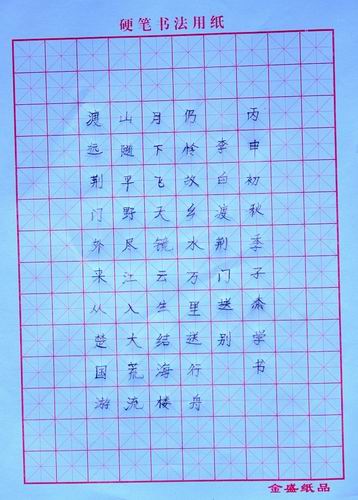 硬笔书法用纸
渡远荆门外来从楚国游
山随平野尽江入大荒流
月下飞天镜云生结海楼
仍怜故乡水万里送行舟
李白渡荆门送别
丙申初秋季子学书
金盛纸品